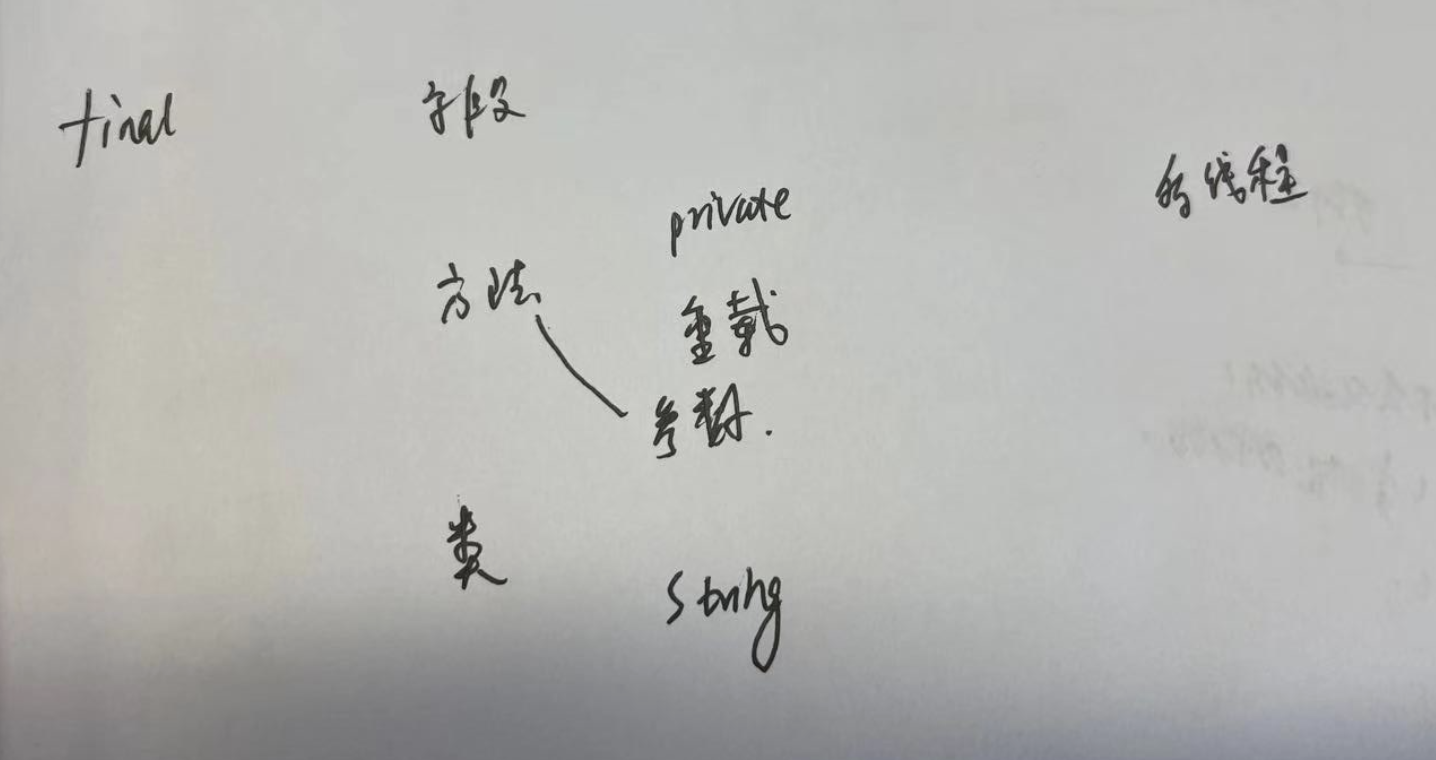 final
字段
多线程
private
方法
重载
参数.
类
String